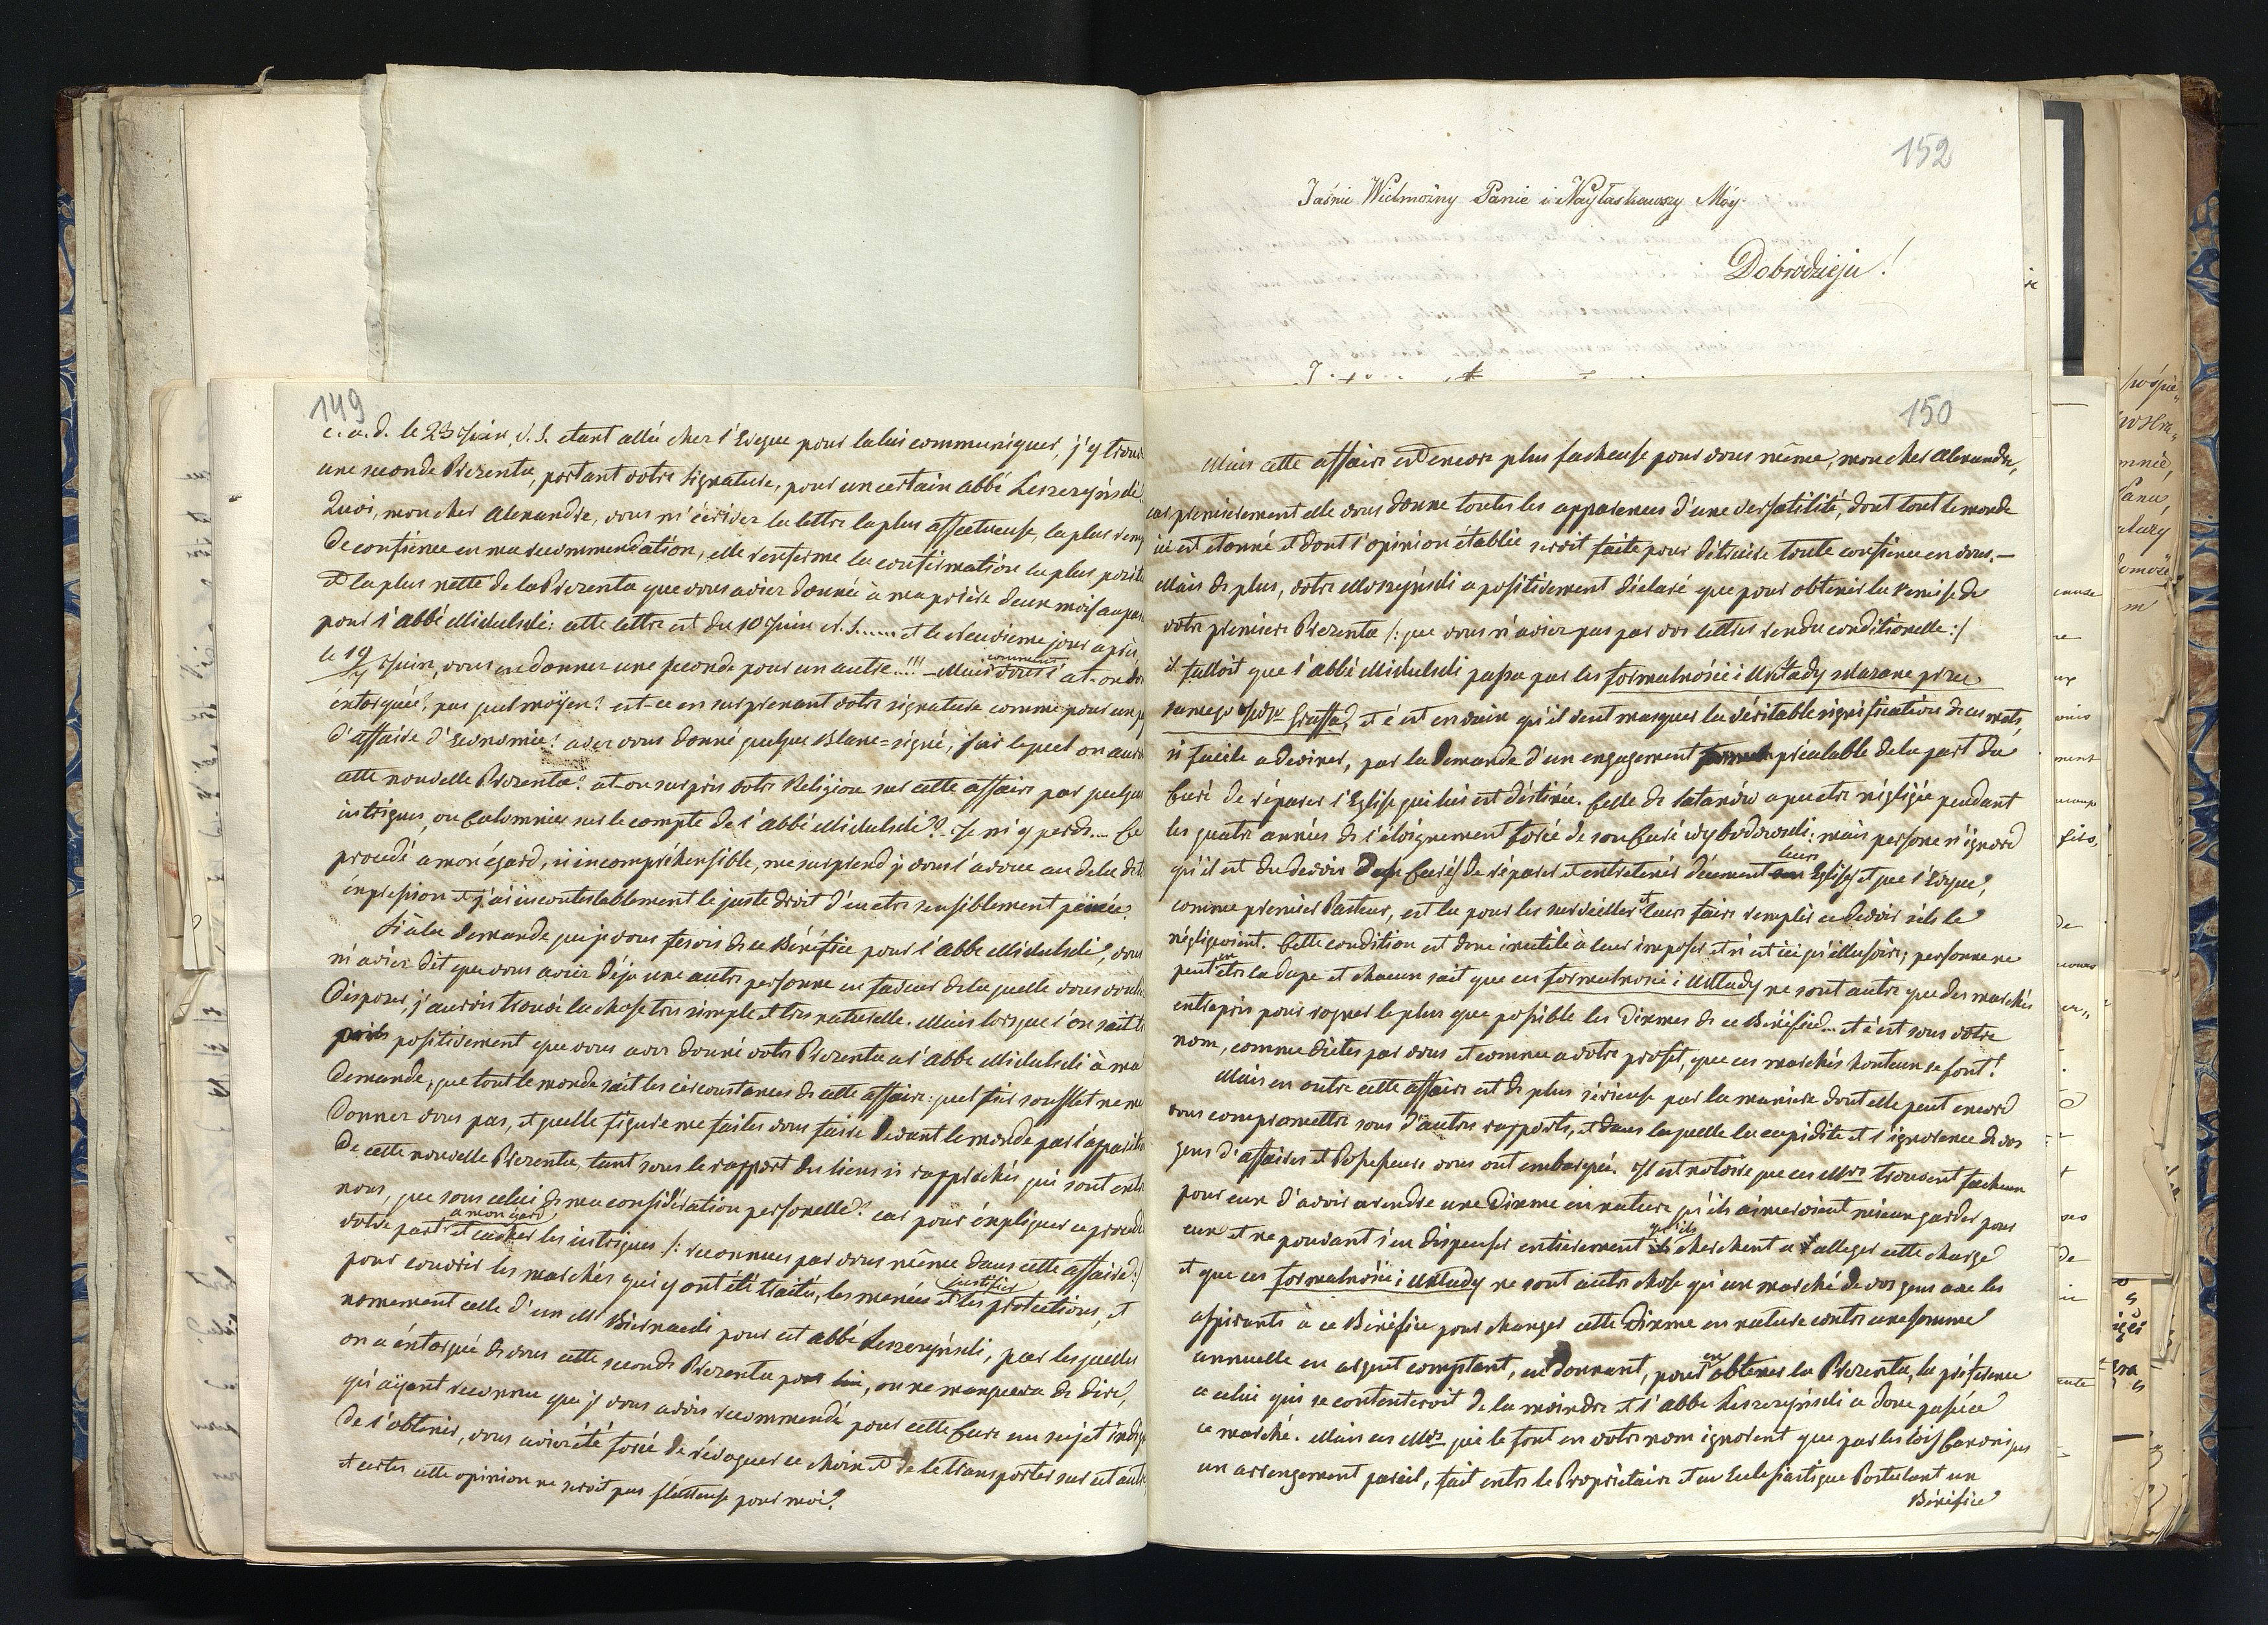 149
c. a. d. le 23 Juin v. S. etant allé chez l'Eveque pour la lui communiquer, j'y trouv
une seconde Prezenta, portant votre signature, pour un certain abbé Leszczyński.
Quoi, mon cher Alexandre, vous m'écrivez la lettre la plus affectueuse, la plus remp
de confience en ma recommendation, elle renferme la confirmation la plus positi
et la plus nette de la Prezenta que vous aviez donnée à ma prière deux mois aupar
pour l'abbé Mikulski: cette lettre est du 10 Juin v. S...... et le neuvieme jour après,
le 19 Juin, vous en donnez une seconde pour un autre...!!! – Mais comment vous l'a t-on
éxtorquée? par quel moÿen? est-ce en surprenant votre signature comme pour un
d'affaire d'Economie? avez vous donné quelque Blanc=signé, sur lequel on aura
cette nouvelle Prezenta? at-on surpris votre Religion sur cette affaire par quelque
intrigues, ou Calomnies sur le compte de l'abbé Mikulski?? Je m'y perds... Ce
procédé a mon égard, si incompréhensible, me surprend je vous l'avoue au dela de
éxpression et j'ai incontestablement le juste droit d'en etre sensiblement peinée.
Si à la demande que je vous fesois de ce Bénéfice pour l'abbé Mikulski, vous
m'aviez dit que vous aviez déja une autre personne en faveur de la quelle vous voul
disposer, j'aurois trouvé la chose tres simple et tres naturelle. Mais lorsque l'on sait
positivement que vous avez donné votre Prezenta a l'abbé Mikulski à ma
demande, que tout le monde sait les circonstances de cette affaire: quel fier soufflet ne me
donnez vous pas, et quelle figure me faites vous faire devant le monde par l'apparition
de cette nouvelle Prezenta, tant sous le rapport des liens si rapprochés qui sont entre
nous, que sous celui de ma considération personelle? car pour éxpliquer ce procedé
votre part a mon égard et cacher les intrigues /: reconnues par vous même dans cette affaire:/
pour couvrir les marchés qui y ont été traités, les menées et justifier les protections, et
nomement celle d'un Mr Biernacki pour cet abbé Leszczyński, par lesquelles
on a éxtorqué de vous cette seconde Prezenta pour lui, on ne manquera de dire,
qu'aÿant reconnu que je vous avois recommendé pour cette Cure un sujet indig
de l'obtenir, vous aviez été forcé de révoquer ce choix et de le transporter sur cet autre
et certes cette opinion ne seroit pas flatteuse pour moi?
152
Jaśnie Wielmożny Panie i Nayłaskawszy Móy
Dobrodzieju!
150
Mais cette affaire est encore plus facheuse pour vous même, mon cher Alexandre,
car premierement elle vous donne toutes les apparences d'une versatilité, dont tout le monde
ici est etonné et dont l'opinion établie seroit faite pour détruire toute confience en vous. —
Mais de plus, votre Moszyński a positivement déclaré que pour obtenir la remise de
votre premiere Prezenta /: que vous n'aviez pas par vos lettres rendu conditionelle :/
il falloit que l'abbé Mikulski passa par les formalności i Układy
et c'est en vain qu'il veut masquer la véritable signification de ces mots,
si facile a deviner, par la demande d'un engagement préalable de la part du
Curé de réparer l'Eglise qui lui est déstinée. Celle de Satanów a pu etre négligée pendant
les quatre années de l'éloignement forcé de son Curé Wybodowski: mais persone n'ignore
qu'il est du devoir des Curés de réparer et entretenir décement leurs Eglises et que l'Eveque,
comme premier Pasteur, est la pour les surveiller et leur faire remplir ce devoir s'ils le
négligeoient. Cette condition est donc inutile à leur imposer et n'est ici qu'illusoire; personne ne
peut en etre la dupe et chacun sait que ces formalności i Układy ne sont autre que des marchés
entrepris pour rogner le plus que possible les Dixmes de ce Bénéfice... et c'est sous votre
nom, comme dictés par vous et comme a votre profit, que ces marchés honteux se font!
Mais en outre cette affaire est de plus sérieuse par la maniere dont elle peut encore
vous compromettre sous d'autres rapports, et dans laquelle la cupidité et l'ignorence de vos
gens d'affaires et Possesseurs vous ont embarqué. Il est notoire que ces Mrs trouvent facheux
pour eux d'avoir a rendre une Dixme en nature qu'ils aimeroient mieux garder pour
eux et ne pouvant s'en dispenser entierement qu'ils cherchent a alleger cette charge
et que ces formalności i Układy ne sont autre chose qu'un marché de vos gens avec les
aspirants à ce Bénéfice pour changer cette Dixme en nature contre une somme
annuelle en argent comptant, en donnant, pour en obtenir la Prezenta, la préférence
a celui qui se contenteroit de la moindre et l'abbé Leszczyński a donc passé ce
marché. Mais ces Mrs qui le font en votre nom ignorent que par les loix Canoniques
un arrengement pareil, fait entre le Propriétaire et un Ecclesiastique Postulant un
Bénéfice